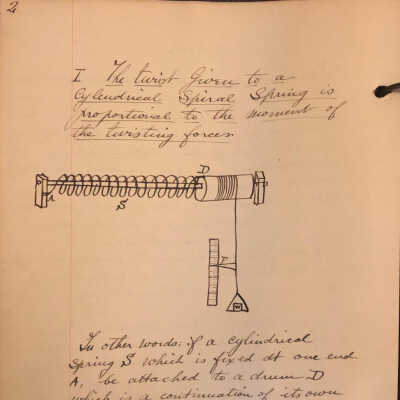 2
I The twist Given to a
Cylendrical Spiral Spring is
proportional to the moment of
the twisting forces
D
A
S
P
W
In other words; if a cylindrical
Spring S which is fixed at one end
A, be attached to a drum D
which is a continuation of its own